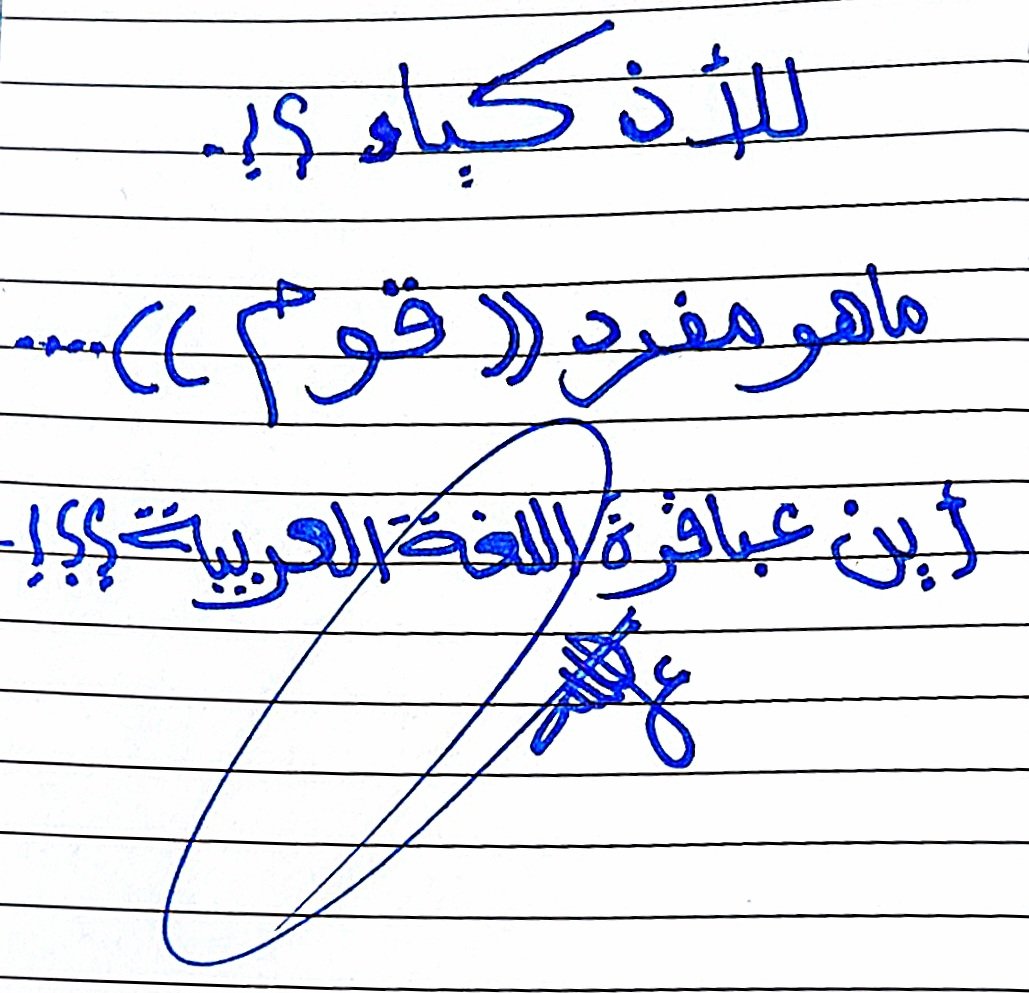 للأذكياء ؟!.
ما هو مفرد (( قوم )) ....
أين عباقرة اللغة العربية ؟؟؟!.